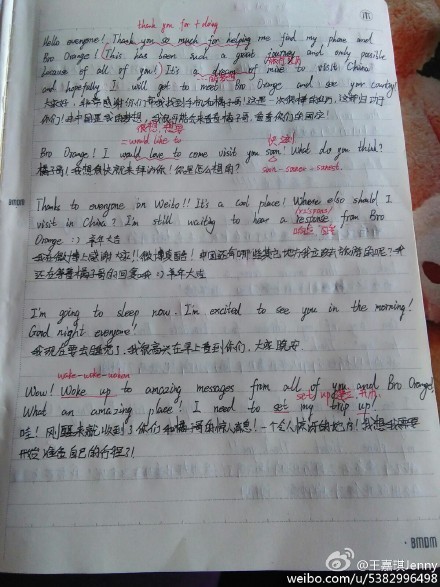 thank you for + doing
Hello everyone! Thank you so much for helping me find my phone and
Bro Orange! (This has been such a great journey and only possible
because of all of you!) It's a dream of mine to visit China
and hopefully I will get to meet Bro Orange and see your country!
大家好,非常感谢你们帮我找到手机和橘子哥!这是一次很棒的旅行,这都归功于
你们!去中国是我的梦想,我很可能去来看看橘子哥,看看你们的国家!
很想 想要
=would like to
Bro Orange! I would love to come visit you soon! What do you think?
橘子哥!我想很快就来拜访你!你是怎么想的?
soon-sooner-soonest
Thanks to everyone on Weibo!! It's a cool place! Where else should I
visit in China? I'm still waiting to have a response from Bro
Orange :) 羊年大吉
我在微博上感谢大家!!微博真酷!中国还有哪些其他地方我应该去旅游的呢?我
还在等着橘子哥的回复 :) 羊年大吉
I'm going to sleep now. I'm excited to see you in the morning!
Good night everyone!
我现在要去睡觉了,我很高兴在早上看到你们,大家晚安
wake-woke-woken
Wow! Woke up to amazing messages from all of you and Bro Orange!
set up
What an amazing place! I need to set my trip up!
哇!刚醒来就收到了你们和橘子哥的惊人消息!一个令人惊讶的地方!我想我需要
开始准备自己的行程了!
BMDM
BMDM
@王嘉琪Jenny
weibo.com/u/5382996498